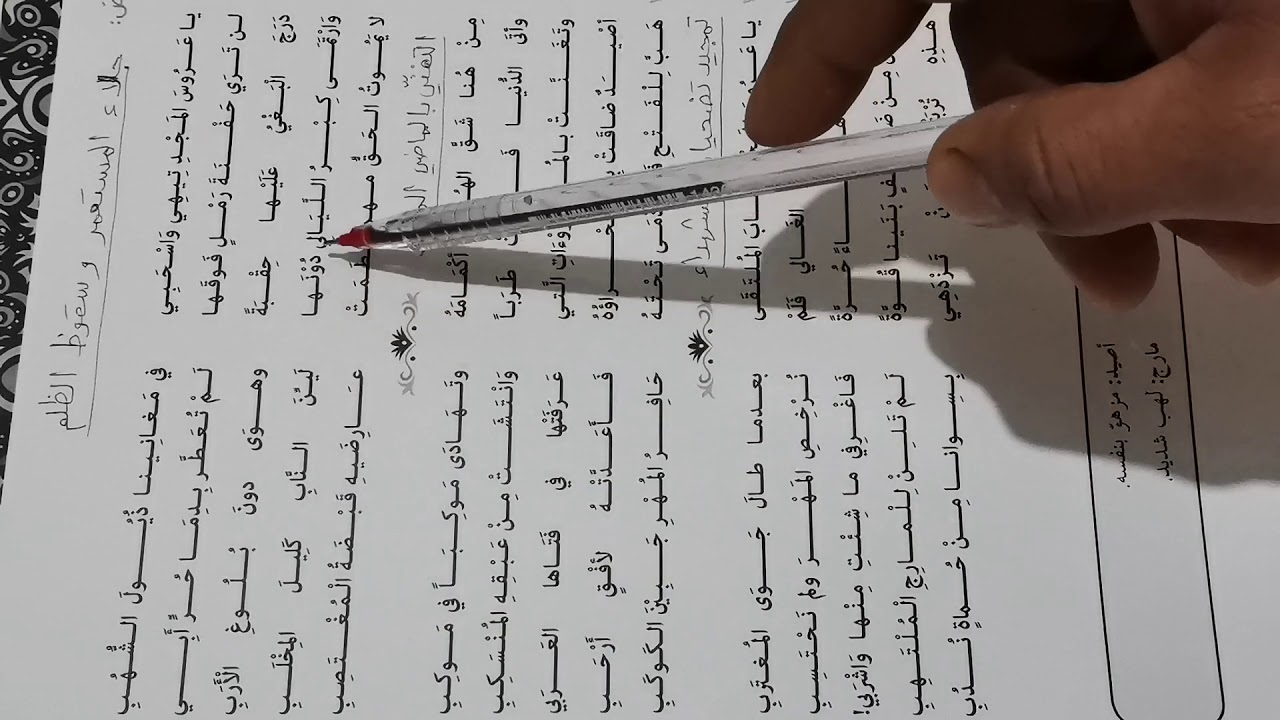 جلاء المستعمر وسقوط الظلم
يا عَرُوسَ المَجْدِ تِيهِي وَاسْحَبِي في مَغَانِينا ذُيُولَ الشُّهُبِ
لن تَرَيْ حَفْنَةَ رَمْلٍ فَوْقَها لَمْ تُعَطَّرْ بِدِمَا حُرٍّ أَبِيِّ
دَرَجَ الْبَغْيُ عَلَيْها حِقْبَةً وهَوَى دونَ بُلُوغِ الْأَرَبِ
وَارْتَمَى كِبْرُ اللَّيَالِي دُوْنَها لَيِّنَ النَّابِ كَلِيلَ المِخْلَبِ
لا يَمُوتُ الحَقُّ عَارِضَيهِ قَبْضَةُ المُغْتَصِبِ
التغنّي بالماضي
مِنْ هُنا شَقَّ أَكْمَامَهُ وتَهَادَى مَوكِبَاً في مَوكِبِ
وأَتَى الدُّنيا طَرَبَاً وَانْتَشَتْ مِنْ عَبَقِهِ المُنْسَكِبِ
وتَغَنَّت الَّتِي عَرَفَتْها في فَتَاها العَرَبي
أَصْيَدٌ ضاقَتْ فَأَعَدَّتْهُ لأُفْقٍ أَرْحَبِ
هَبَّ لِلْفَتْحِ تَحْتَهُ حافِرُ المُهْرِ جَبِيْنَ الكَوكَبِ
تمجيد تضحيات
يا المُلْتَقَى بعدما طالَ جَوَى المُغْتَرِبِ
الغالي فَلَمْ نُرْخِصِ المَهْرَ ولم نَحْتَسِبِ
حُرَّةً فَاغْرِفِي ما شِئْتِ مِنْها وَاشْرَبي!
مِنْ بَنَينا قُوَّةً لَمْ تَلِنْ لِلْمارِجِ المُلْتَهِبِ
هذِهِ تَزْدَهِي بِسِوانا مِنْ حُماةٍ نُدُبِ
أصيد: مزهوّ بنفسه.
مارج: لهب شديد.